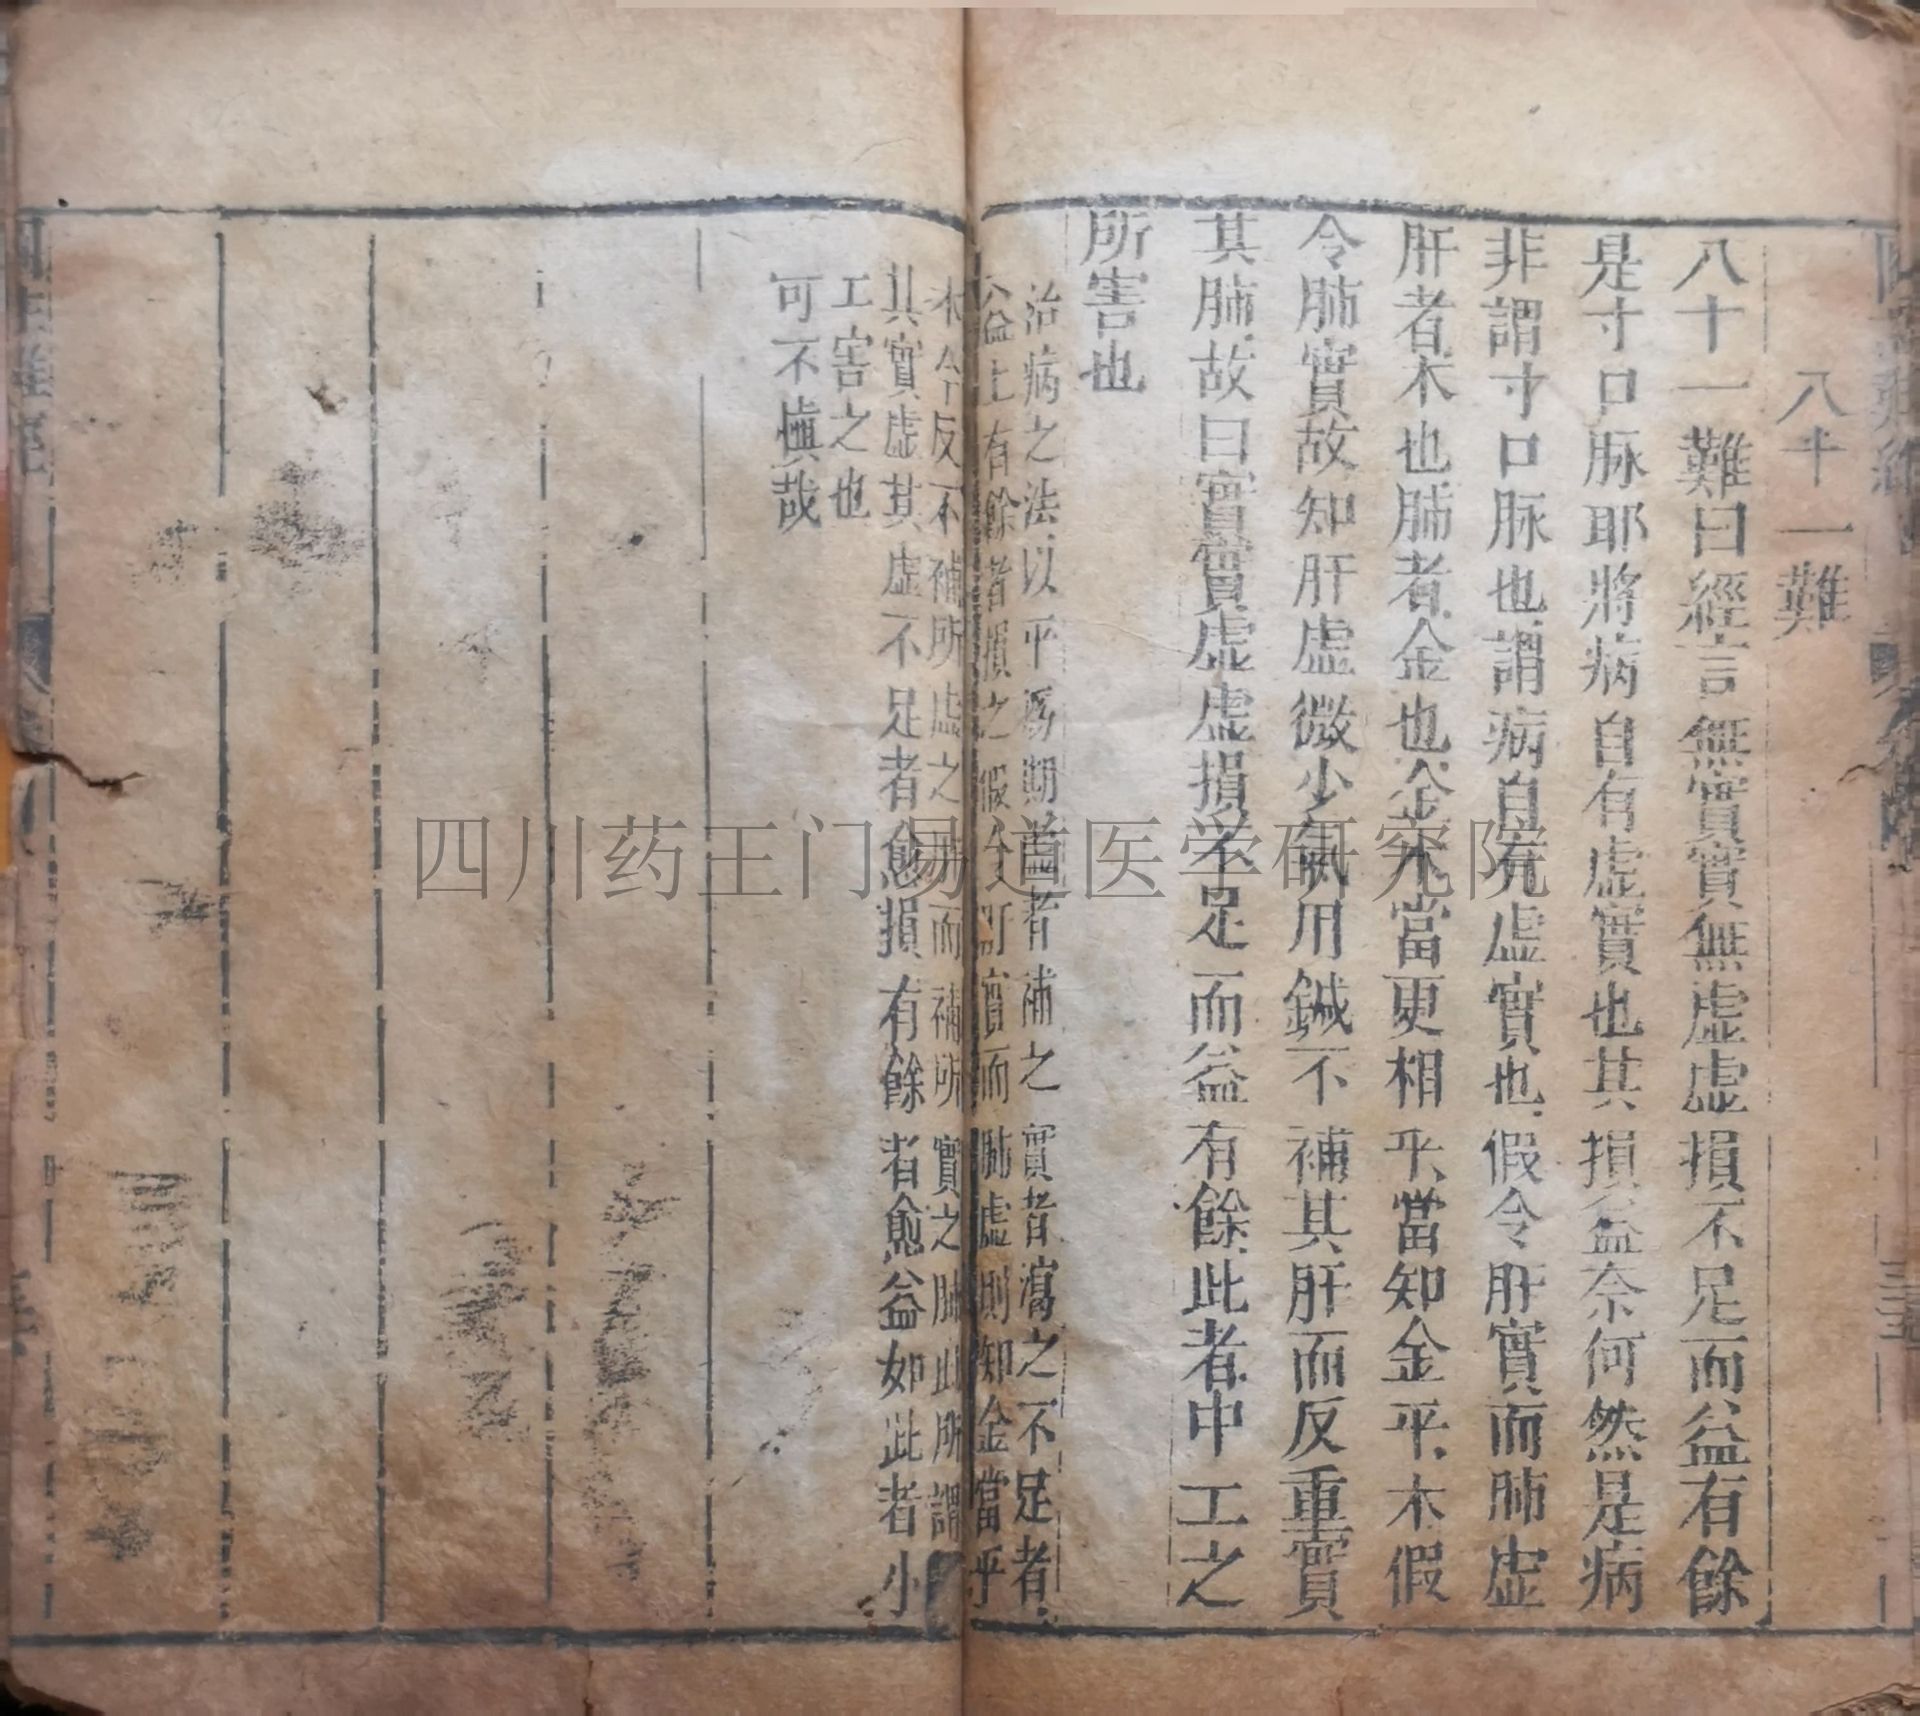 八十一難
八十一難曰經言無實實無虛虛損不足而益有餘
是寸口脉耶將病自有虛實也其損益奈何然是病
非謂寸口脉也謂病自有虛實也假令肝實而肺虛
肝者木也肺者金也金木當更相平當知金平木假
令肺實故知肝虛微少氣用鍼不補其肝而反重實
其肺故曰實實虛虛損不足而益有餘此者中工之
所害也
治病之法以平爲期益者補之實者瀉之不足者
益上有餘者損之假令肝實而肺虛則知金當平
木今反不補所虛之而補所實之肺此所謂
其實虛其虛不足者愈損有餘者愈益如此者小
工害之也
可不慎哉
四川药王门易道医学研究院